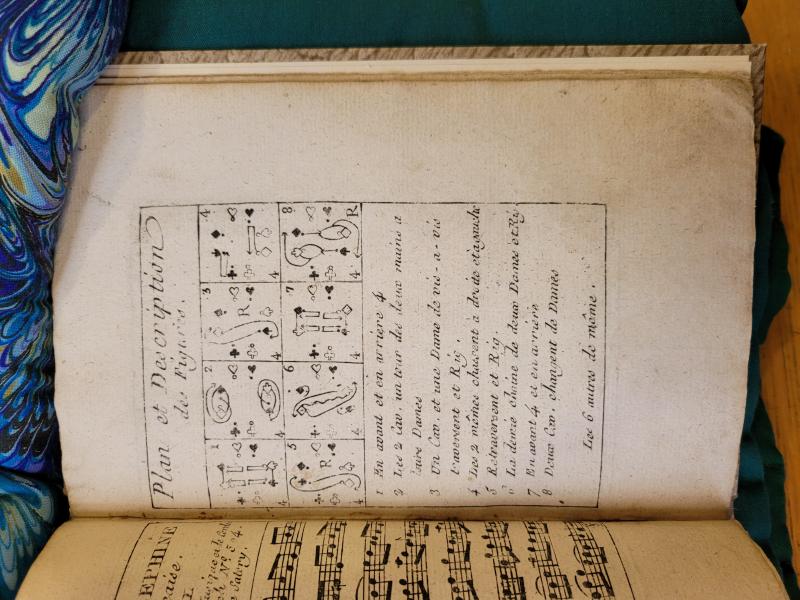 Plan et Description
des Figures.
1 2 3 4
R
4 4 4 4
5 6 7 8
R R
4 4 4 4
1 En avant et en arriere 4
2 Les 2 Cav. un tour des deux mains a
leure Dames
3 Un Cav. et une Dame de vis-a-vis
traversent et Rig.
4 Les 2 mêmes chassent a droite et agauche
5 Retraversent et Rig.
6 La demie chaine de deux Dames et Rig
7 En avant 4 et en arriere
8 Deux Cav. changent de Dames
Les 6 autres de même.
EPHINE
aise.
Nº. 54.
Salery.